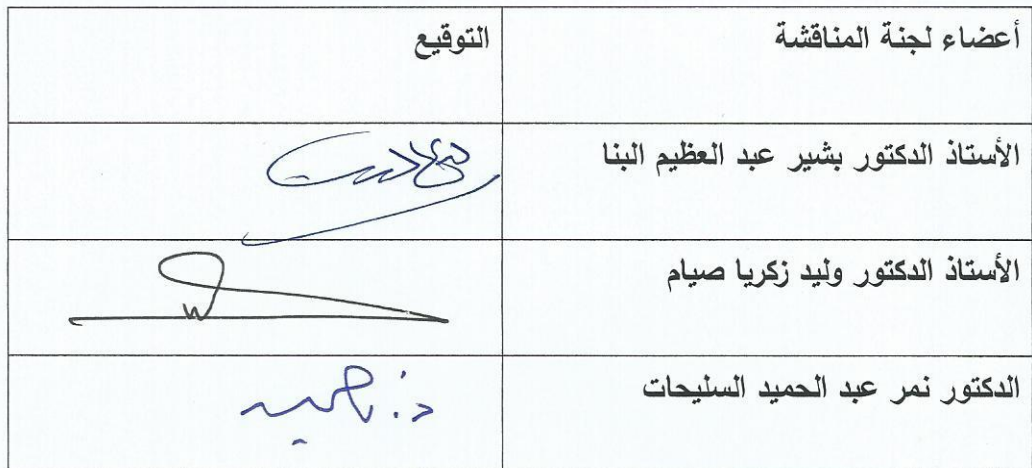 أعضاء لجنة المناقشة التوقيع
الأستاذ الدكتور بشير عبد العظيم البنا
الأستاذ الدكتور وليد زكريا صيام
الدكتور نمر عبد الحميد السليحات